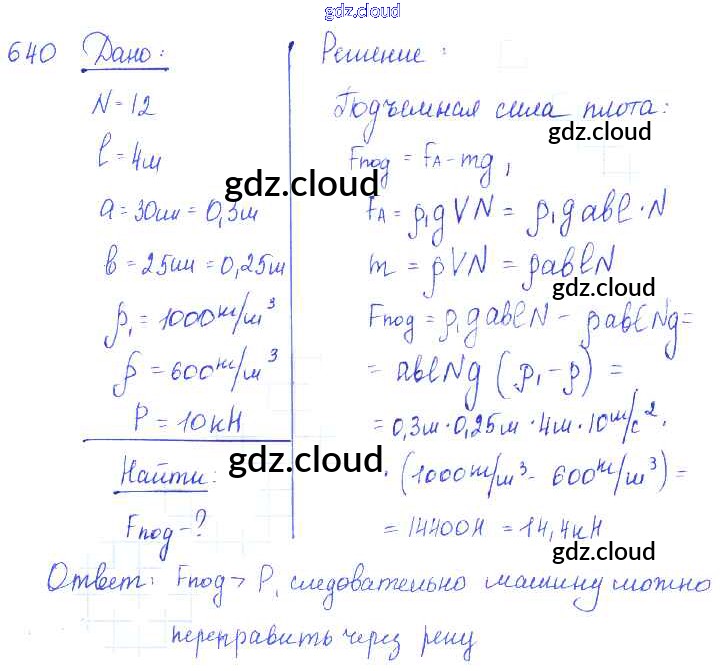 gdz.cloud
640 Дано:
N = 12
l = 4м
a = 30см = 0,3м
b = 25см = 0,25м
ρ₁ = 1000 кг/м³
ρ = 600 кг/м³
P = 10кН
Найти:
Fпод - ?
Решение:
Подъемная сила плота:
gdz.cloud
Fпод = FA - mg,
gdz.cloud
FA = ρ₁gVN = ρ₁gabl·N
m = ρVN = ρablN
gdz.cloud
Fпод = ρ₁gablN - ρablNg =
= ablNg (ρ₁ - ρ) =
= 0,3м · 0,25м · 4м · 10м/с² ·
gdz.cloud
· (1000кг/м³ - 600кг/м³) =
= 14400Н = 14,4кН
gdz.cloud
Ответ: Fпод > P, следовательно машину можно
переправить через реку